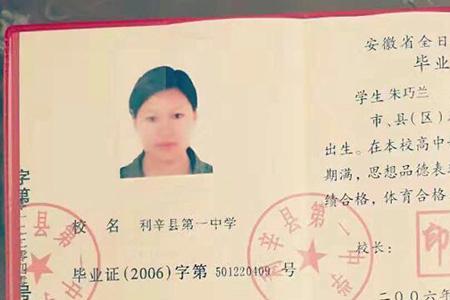 安徽省全日
毕业
学生 朱巧兰
市、县(区)
出生。在本校高中
期满,思想品德表
绩合格,体育合格
校 名 利辛县第一中学
校长:
印
毕业证(2006)字第 501220409 号
二〇〇六年
利辛县第一中学
字第